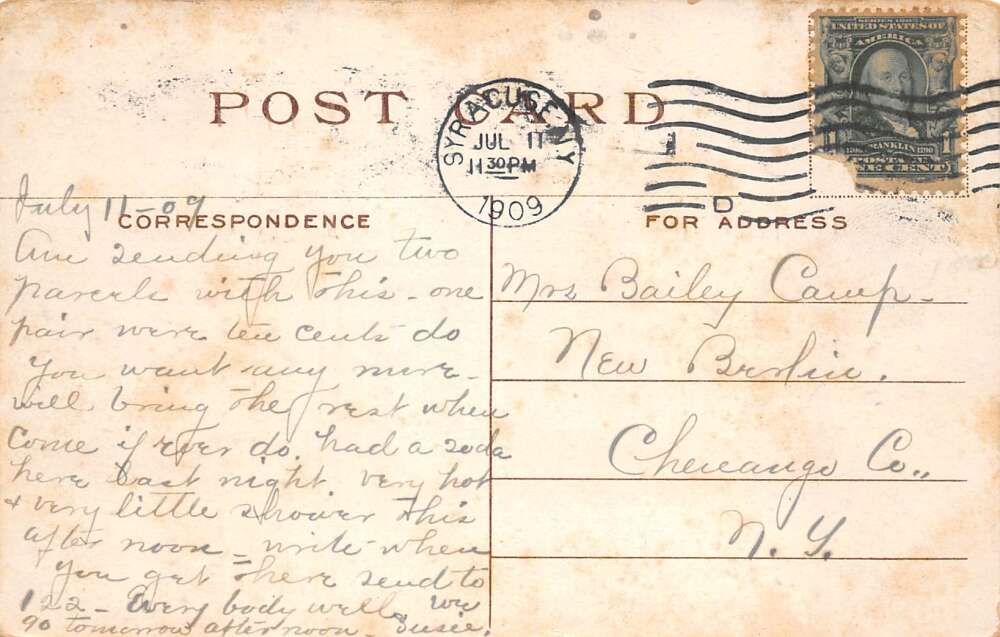 POST CARD
SYRACUSE NY
JUL 11
11 30 PM
1909
D
SERIES 1902
UNITED STATES OF
AMERICA
FRANKLIN 1790
1
CENT
CORRESPONDENCE
FOR ADDRESS
July 11-09
Am sending you two
parcels with this - one
pair were ten cents do
you want any more -
will bring the rest when
come if ever do. had a soda
here last night very hot
& very little shower this
after noon - write when
you get there send to
122 - Every body well We
go tomorrow afternoon - Susie.
Mrs Bailey Camp -
New Berlin.
Chenango Co.,
N. Y.